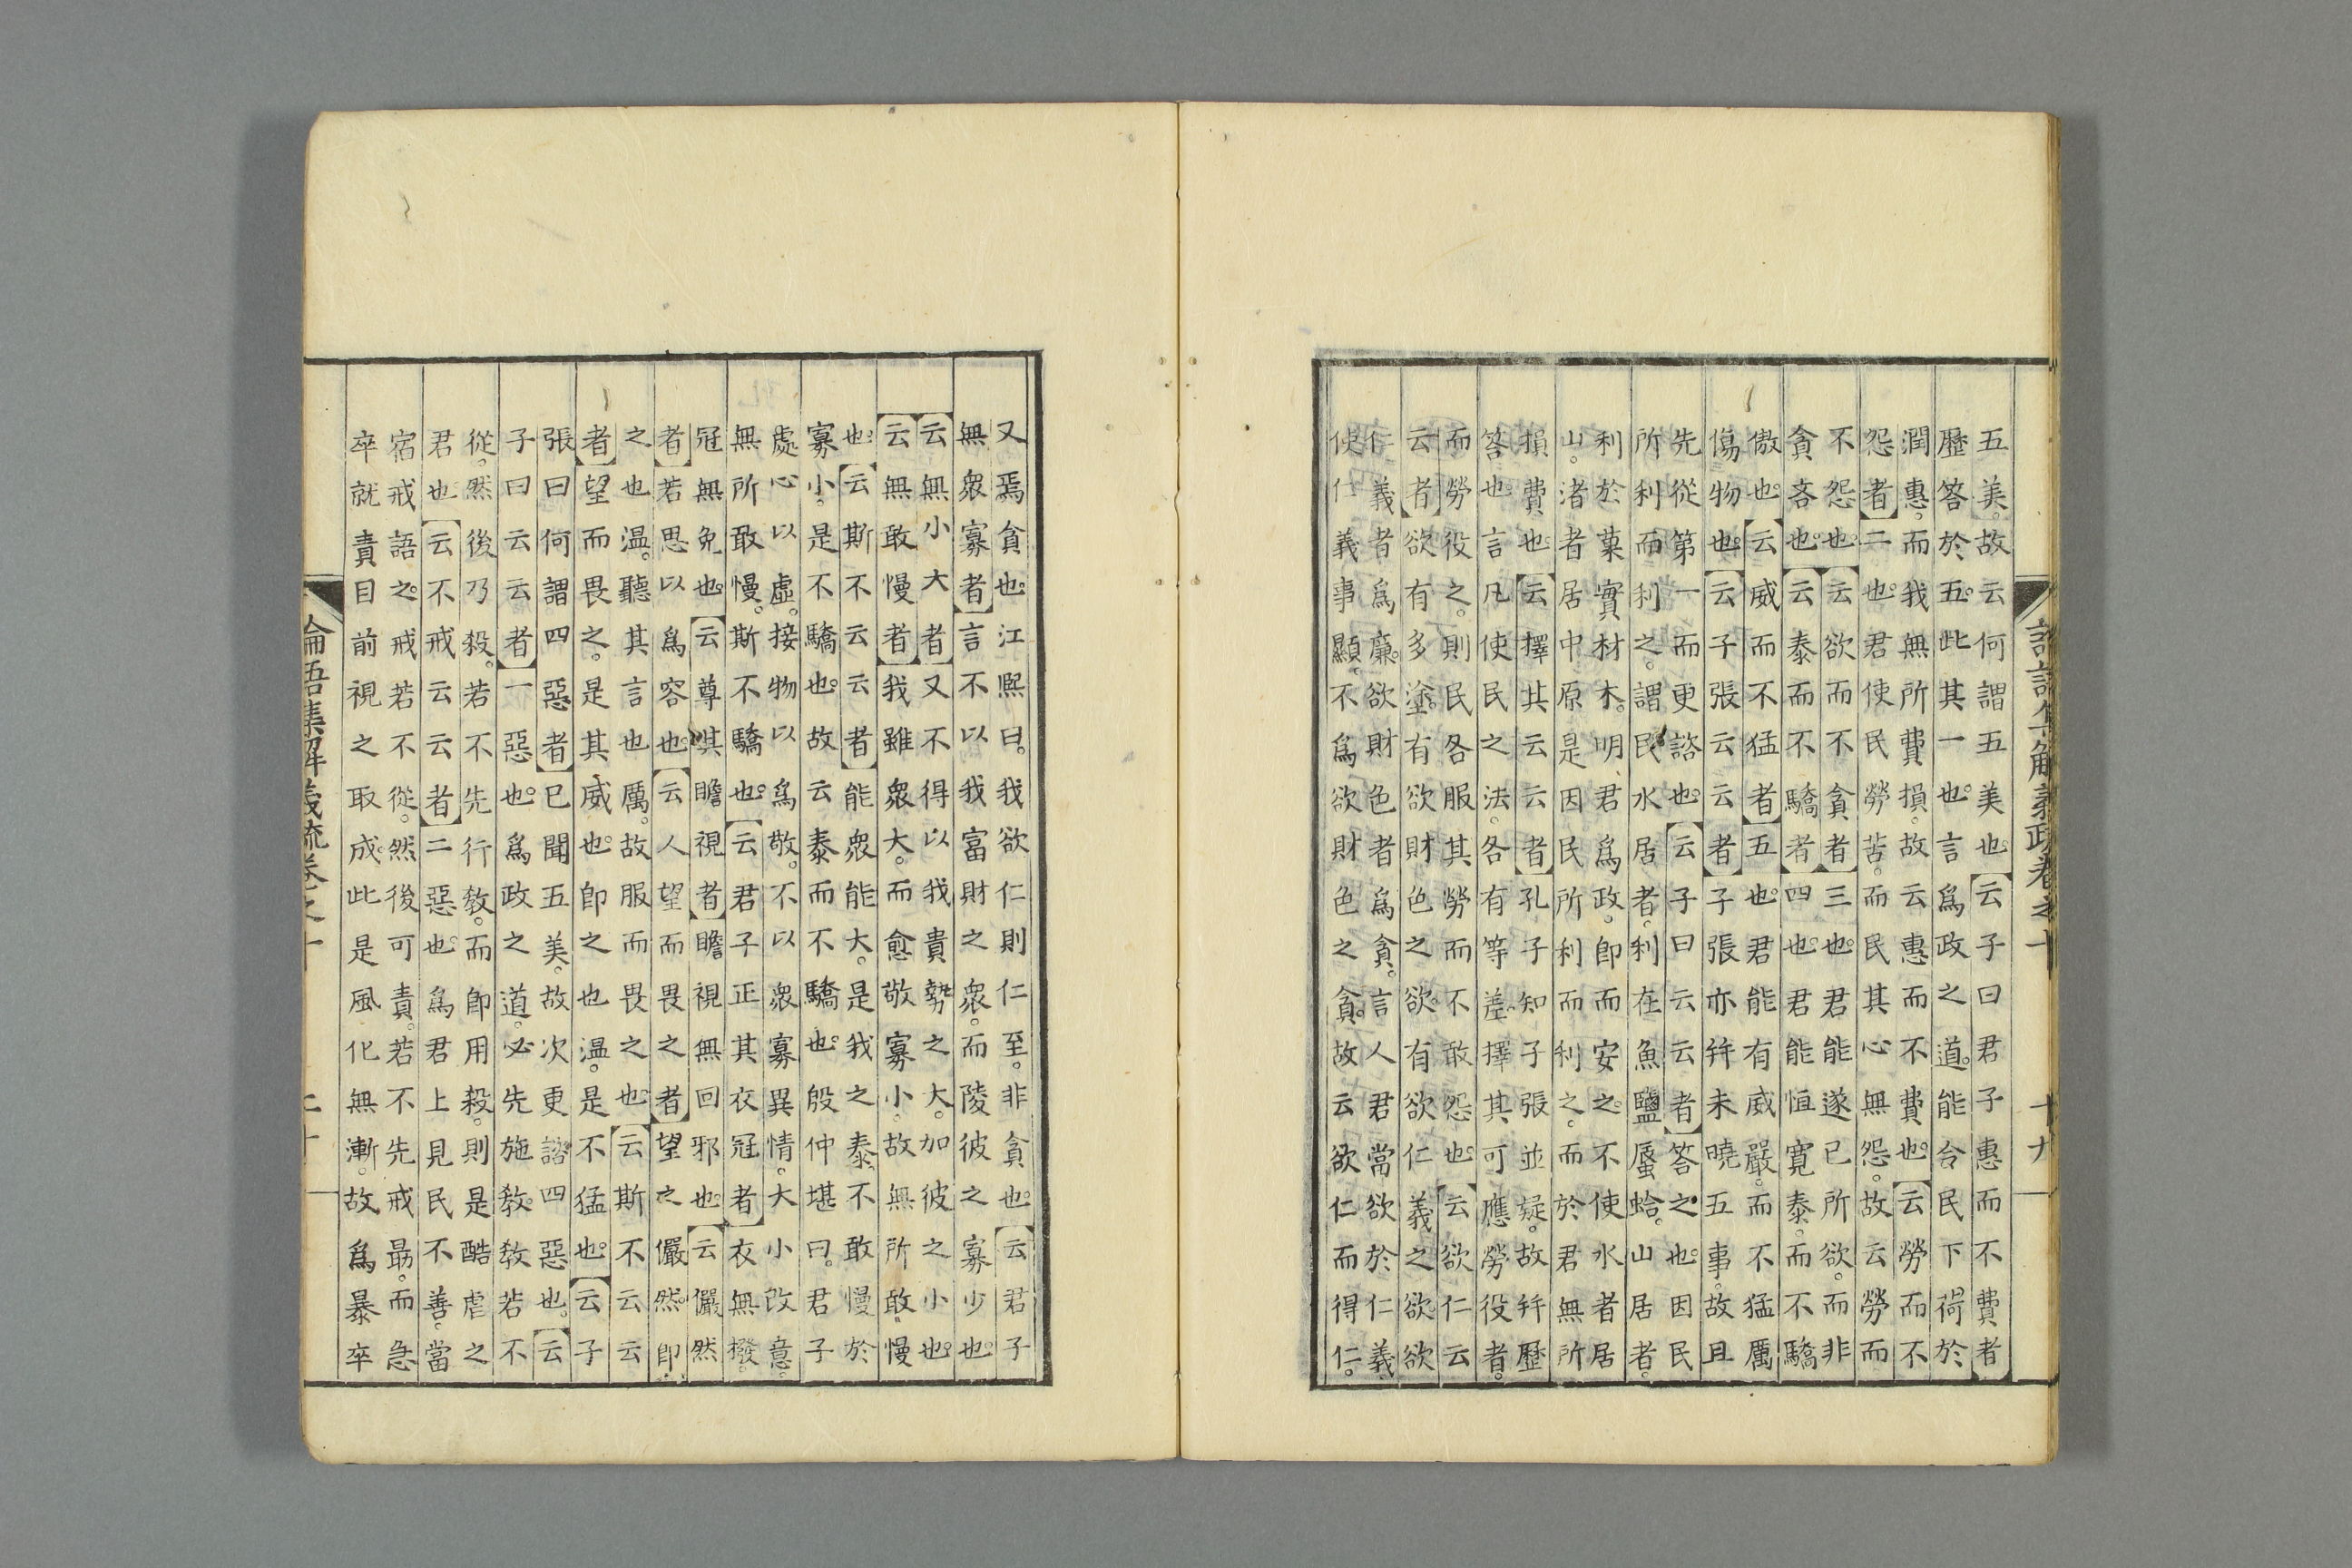 論語集解義疏卷之十　十九
五美。故云何謂五美也。云子曰君子惠而不費者
歷答於五。此其一也。言爲政之道。能令民下荷於
潤惠。而我無所費損。故云惠而不費也。云勞而不
怨者二也。君使民勞苦。而民其心無怨。故云勞而
不怨也。云欲而不貪者三也。君能遂已所欲。而非
貪吝也。云泰而不驕者四也。君能恒寬泰。而不驕
傲也。云威而不猛者五也。君能有威嚴。而不猛厲
傷物也。云子張云云者子張亦幷未曉五事。故且
先從第一而更諮也。云子曰云云者答之也。因民
所利而利之。謂民水居者。利在魚鹽蜃蛤。山居者。
利於菓實材木。明君爲政。卽而安之。不使水者居
山。渚者居中原。是因民所利而利之。而於君無所
損費也。云擇其云云者孔子知子張並疑。故幷歷
答也。言凡使民之法。各有等差。擇其可應勞役者。
而勞役之。則民各服其勞而不敢怨也。云欲仁云
云者欲有多塗。有欲財色之欲。有欲仁義之欲。欲
仁義者爲廉。欲財色者爲貪。言人君當欲於仁義。
使仁義事顯。不爲欲財色之貪。故云欲仁而得仁。
又焉貪也。江熙曰。我欲仁則仁至。非貪也。云君子
無衆寡者言不以我富財之衆。而陵彼之寡少也。
云無小大者又不得以我貴勢之大。加彼之小也。
云無敢慢者我雖衆大。而愈敬寡小。故無所敢慢
也。云斯不云云者能衆能大。是我之泰不敢慢於
寡小。是不驕也。故云泰而不驕也。殷仲堪曰。君子
處心以虛。接物以爲敬。不以衆寡異情。大小改意。
無所敢慢。斯不驕也。云君子正其衣冠者衣無撥。
冠無免也。云尊其瞻視者瞻視無回邪也。云儼然
者若思以爲容也。云人望而畏之者望之儼然。卽
之也溫。聽其言也厲。故服而畏之也。云斯不云云
者望而畏之。是其威也。卽之也溫。是不猛也。云子
張曰何謂四惡者已聞五美。故次更諮四惡也。云
子曰云云者一惡也。爲政之道。必先施敎。敎若不
從。然後乃殺。若不先行敎。而卽用殺。則是酷虐之
君也。云不戒云云者二惡也。爲君上見民不善。當
宿戒語之。戒若不從。然後可責。若不先戒最。而急
卒就責目前視之取成。此是風化無漸。故爲暴卒
論語集解義疏卷之十　二十